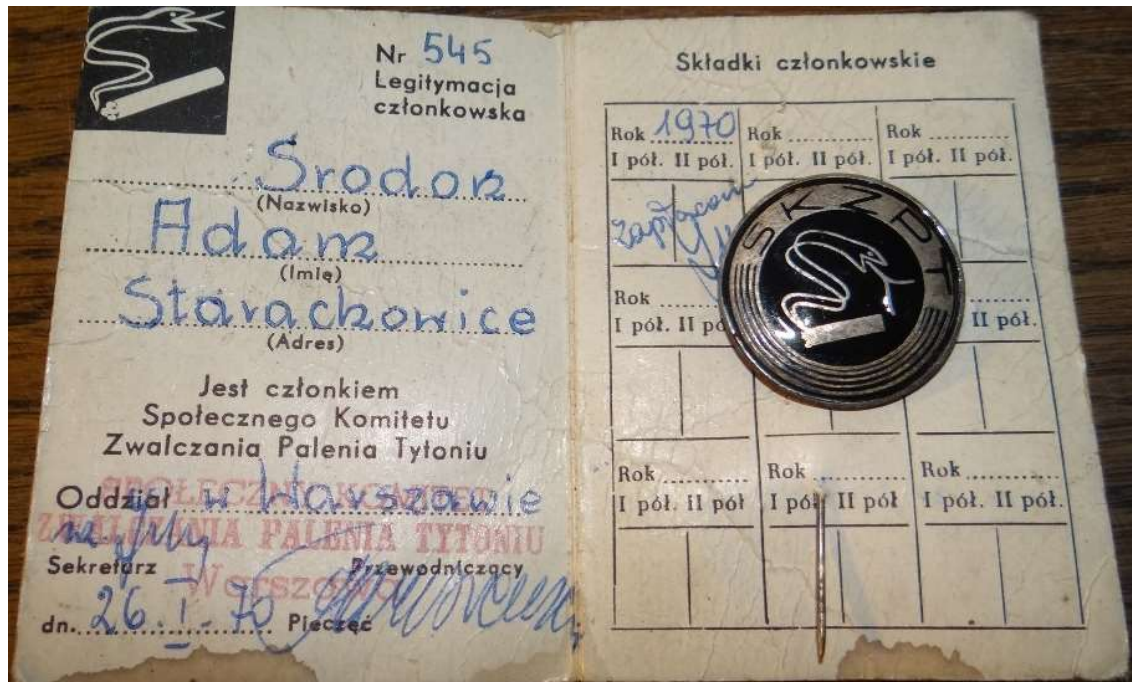 Nr 545
Legitymacja
członkowska
Środoń
(Nazwisko)
Adam
(Imię)
Starachowice
(Adres)
Jest członkiem
Społecznego Komitetu
Zwalczania Palenia Tytoniu
Oddział w Warszawie
SPOŁECZNY KOMITET
ZWALCZANIA PALENIA TYTONIU
Warszawa
Sekretarz Przewodniczący
dn. 26.I-70 Pieczęć
Składki członkowskie
Rok 1970 Rok Rok
I pół. II pół. I pół. II pół. I pół. II pół.
zapłacono
SKZPT
Rok
I pół. II pół.
Rok Rok Rok
I pół. II pół I pół II pół I pół. II pół.